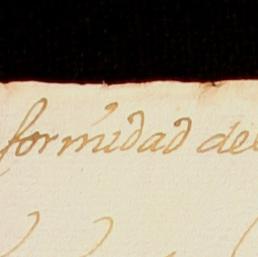 formidad del